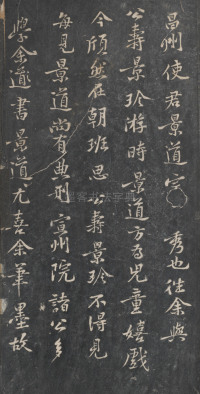 昌州使君景道宗秀也往余與
公壽景珎游時景道方為兒童嬉戲
今頎然在朝班思公壽景珎不得見
每見景道尚有典刑宣州院諸公多
學余道書景道尤喜余筆墨故